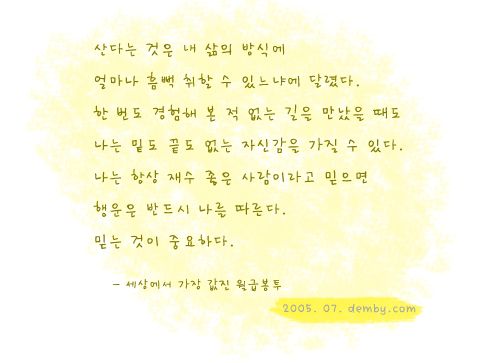 산다는 것은 내 삶의 방식에
얼마나 흠뻑 취할 수 있느냐에 달렸다.
한 번도 경험해 본 적 없는 길을 만났을 때도
나는 밑도 끝도 없는 자신감을 가질 수 있다.
나는 항상 재수 좋은 사람이라고 믿으면
행운은 반드시 나를 따른다.
믿는 것이 중요하다.
- 세상에서 가장 값진 월급봉투
2005. 07. demby.com